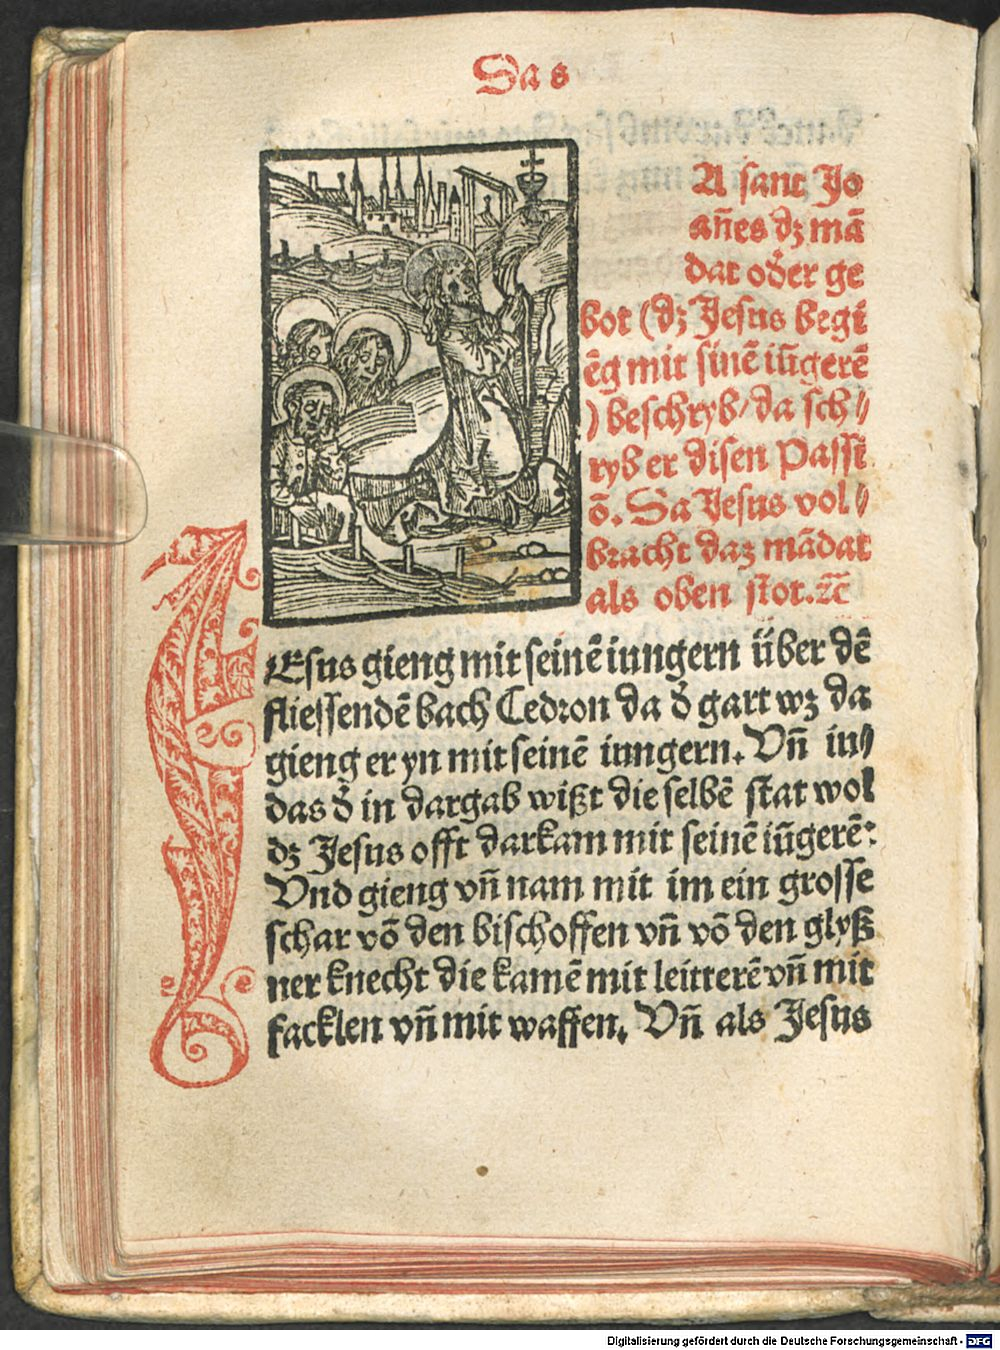 Das
A sant Jo
añes dꝫ mā
dat od̕er ge
bot (dꝫ Jesus begi
ēg mit sinē iūgerē
) beschryb / da sch⸗
ryb er disen Passi
ō. Da Jesus vol⸗
bracht daz mādat
als oben stot. ꝛc̄
Esus gieng mit seinē iungern über dē
fliessendē bach Cedron da d̕ gart wꝫ da
gieng er yn mit seinē iungern. Vñ iu⸗
das d̕ in dargab wißt die selbē stat wol
dꝫ Jesus offt darkam mit seinē iūgerē:
Vnd gieng vñ nam mit im ein grosse
schar vō den bischoffen vñ vō den glyß
ner knecht die kamē mit leitterē vñ mit
facklen vñ mit waffen. Vñ als Jesus
Digitalisierung gefördert durch die Deutsche Forschungsgemeinschaft - DFG